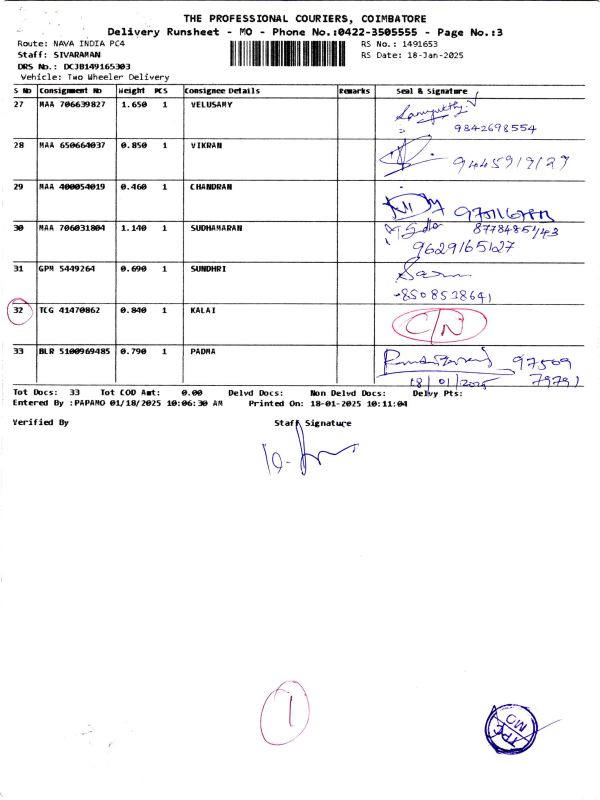 THE PROFESSIONAL COURIERS, COIMBATORE
Delivery Runsheet - MO - Phone No.:0422-3505555 - Page No.:3
Route: NAVA INDIA PC4 RS No.: 1491653
Staff: SIVARAMAN RS Date: 18-Jan-2025
DRS No.: DCJB149165303
Vehicle: Two Wheeler Delivery
S No Consignment No Weight PCS Consignee Details Remarks Seal & Signature
27 MAA 706639827 1.650 1 VELUSAMY
9842698554
28 MAA 650664037 0.850 1 VIKRAN
29 MAA 400054019 0.460 1 CHANDRAN
30 MAA 706031804 1.140 1 SUDHAMARAN
9629165127
31 GPM 5449264 0.690 1 SUNDHRI
8508538641
32 TCG 41470862 0.840 1 KALAI C/N
33 BLR 5100969485 0.790 1 PADMA 97509
18/01/2025 79791
Tot Docs: 33 Tot COD Amt: 0.00 Delvd Docs: Non Delvd Docs: Delvy Pts:
Entered By :PAPAMO 01/18/2025 10:06:30 AM Printed On: 18-01-2025 10:11:04
Verified By Staff Signature
1
TPC
MO